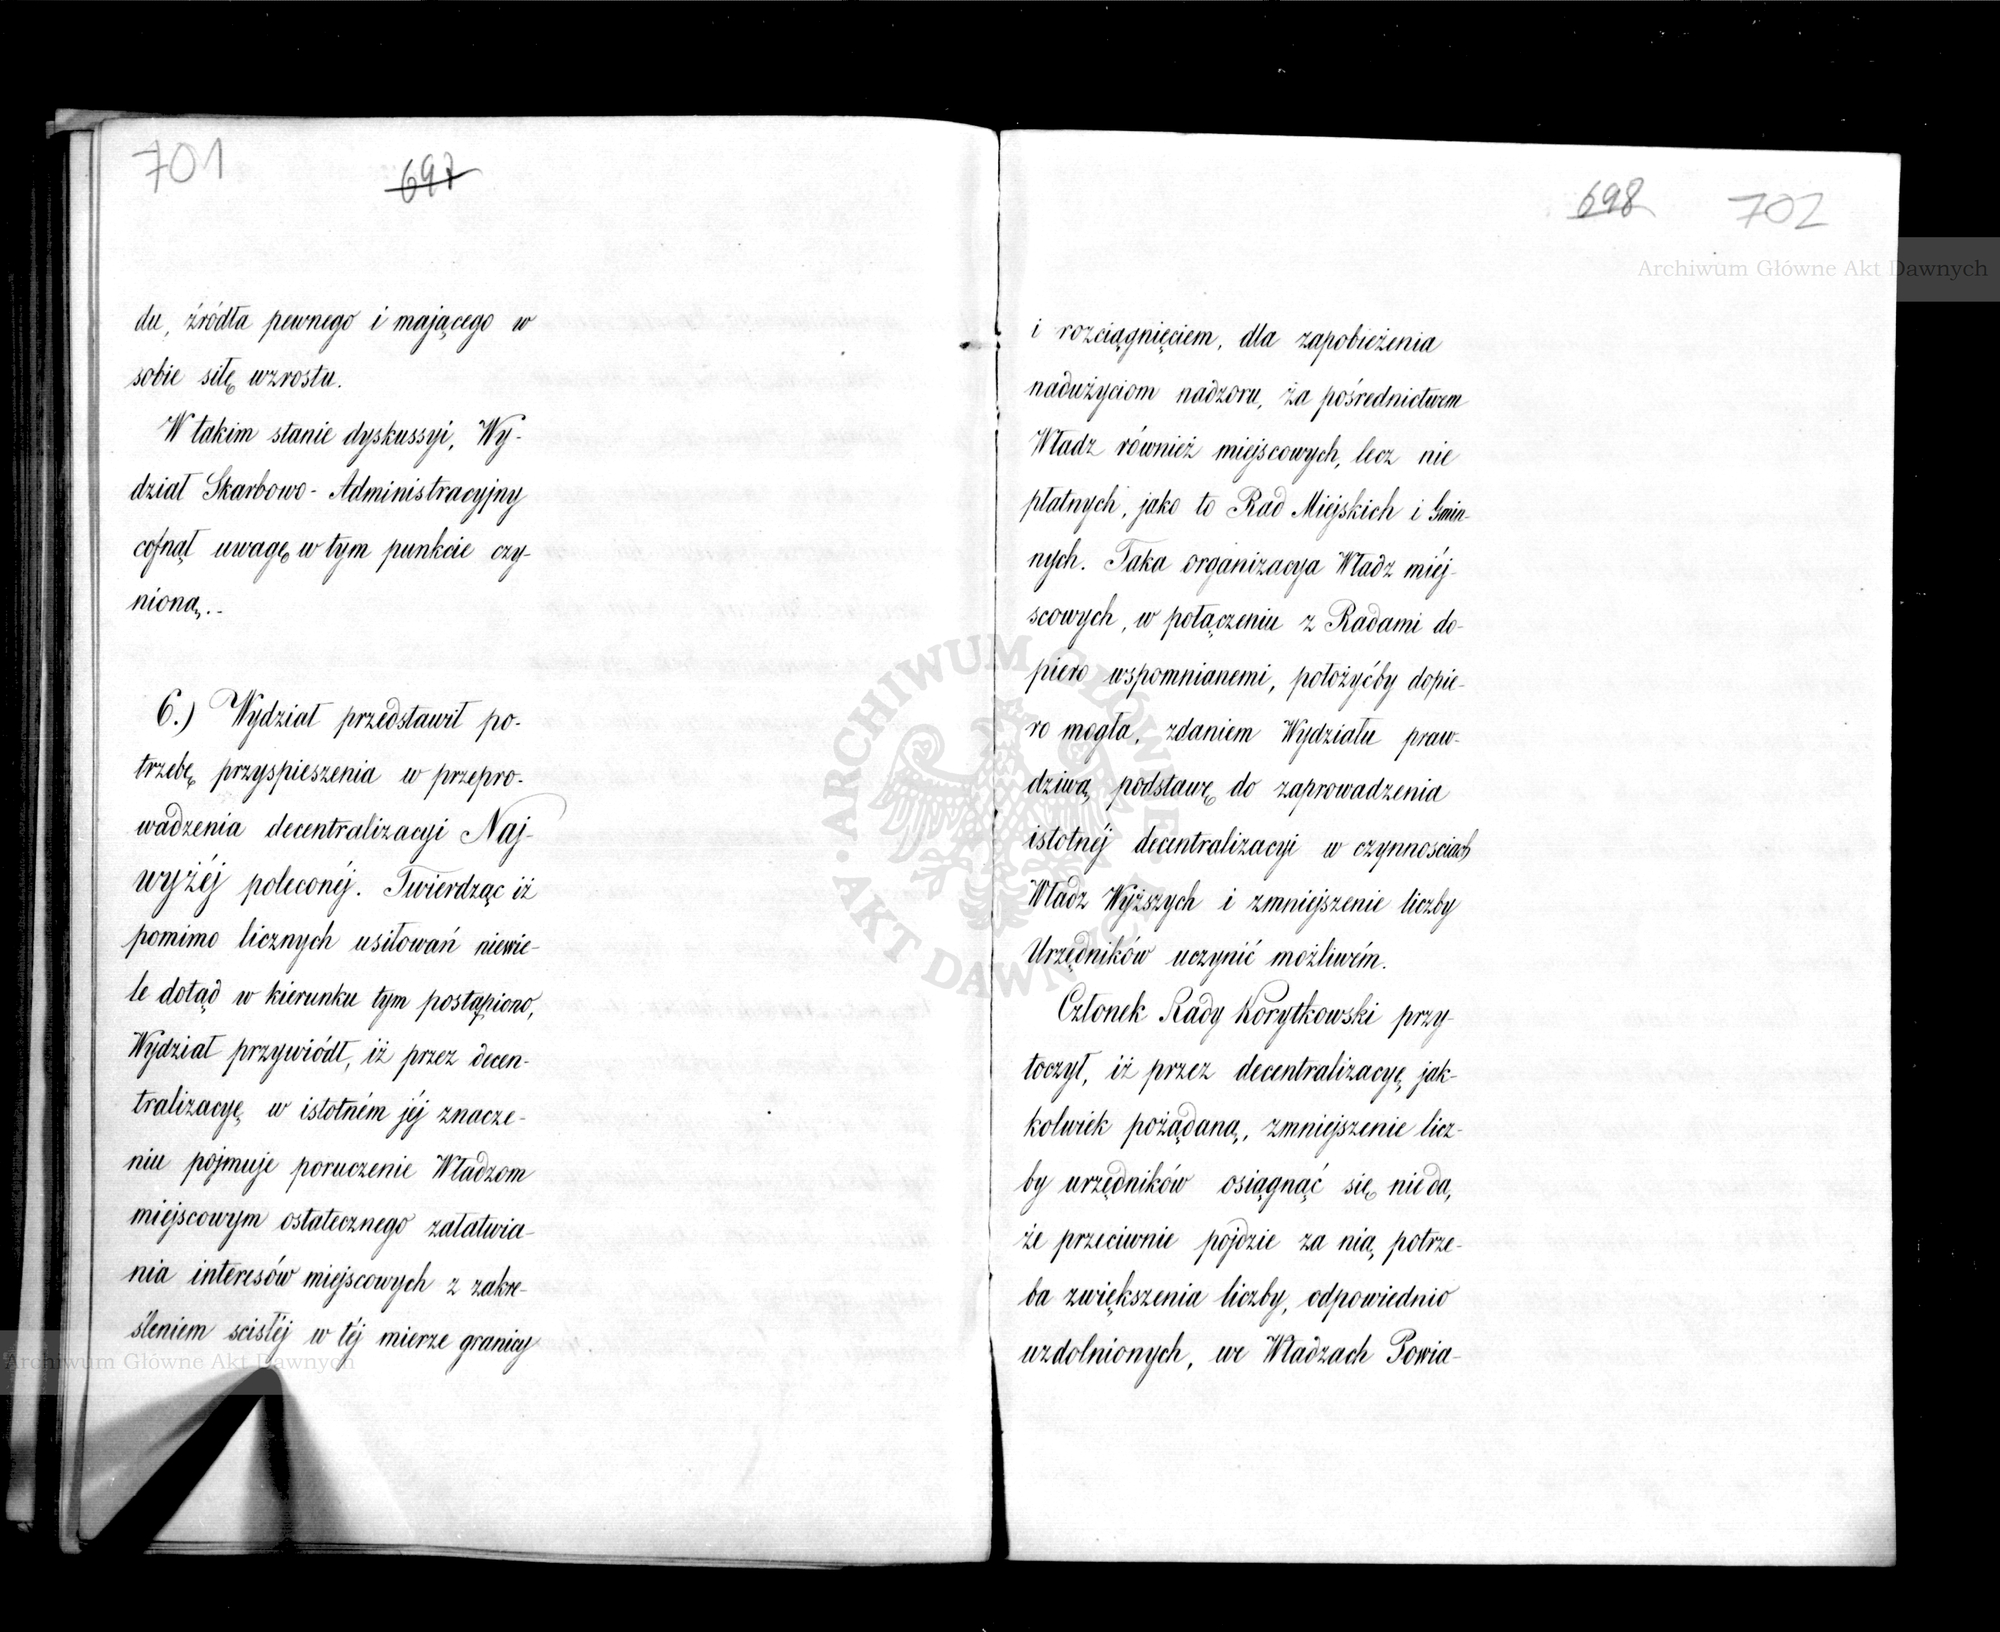 701
697
du, źródła pewnego i mającego w
sobie siłę wzrostu.
W takim stanie dyskussyi, Wy-
dział Skarbowo-Administracyjny
cofnął uwagę w tym punkcie czy-
nioną.-
6.) Wydział przedstawił po-
trzebę przyspieszenia w przepro-
wadzenia decentralizacyi Naj-
wyżéj poleconéj. Twierdząc iż
pomimo licznych usiłowań niewie-
le dotąd w kierunku tym postąpiono,
Wydział przywiódł, iż przez decen-
tralizacyę w istotném jéj znacze-
niu pojmuje poruczenie Władzom
miejscowym ostatecznego załatwia-
nia interesów miejscowych z zakre-
śleniem scisłéj w téj mierze granicy
698
702
i rozciągnięciem, dla zapobieżenia
nadużyciom nadzoru, za pośrednictwem
Władz również miejscowych, lecz nie
płatnych, jako to Rad Miejskich i Gmin-
nych. Taka organizacya Władz miéj-
scowych, w połączeniu z Radami do-
piero wspomnianemi, położyćby dopie-
ro mogła, zdaniem Wydziału praw-
dziwą podstawę do zaprowadzenia
istotnéj decentralizacyi w czynnosciach
Władz Wyższych i zmniejszenie liczby
Urzędników uczynić możliwém.
Członek Rady Korytkowski przy-
toczył, iż przez decentralizacyę jak-
kolwiek pożądaną, zmniejszenie licz-
by urzędników osiągnąć się nie da,
że przeciwnie pojdzie za nią potrze-
ba zwiększenia liczby, odpowiednio
uzdolnionych, we Władzach Powia-
Archiwum Główne Akt Dawnych
ARCHIWUM GŁÓWNE AKT DAWNYCH
Archiwum Główne Akt Dawnych